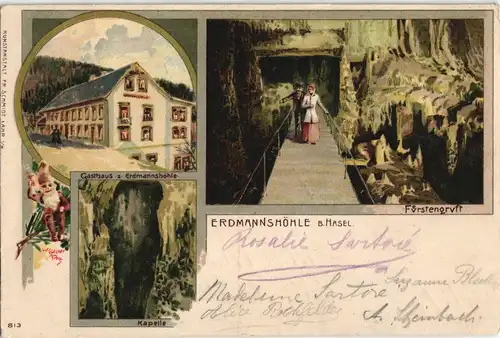 KUNSTANSTALT FR. SCHMIDT LAHR i/B
Gasthaus z. Erdmannshöhle
Fürstengruft
ERDMANNSHÖHLE B. HASEL.
Rosalie Sartori
Suzanne
Madeleine Sartore
Alice
A. Steinbach
Kapelle
813